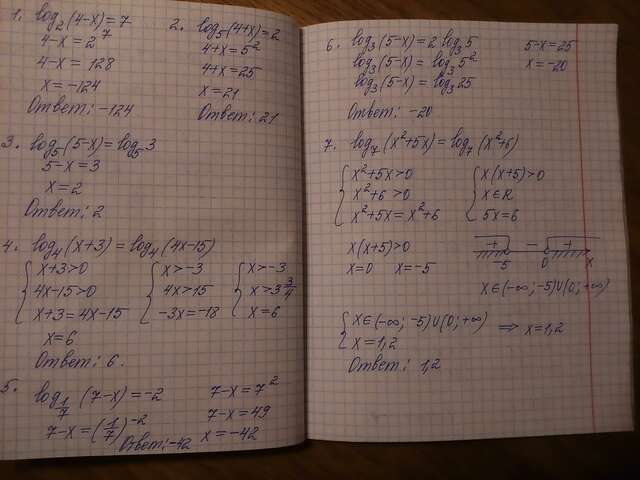 1. log₂(4-x)=7
4-x=2⁷
4-x=128
x=-124
Ответ: -124
2. log₅(4+x)=2
4+x=5²
4+x=25
x=21
Ответ: 21
3. log₅(5-x)=log₅3
5-x=3
x=2
Ответ: 2
4. log₄(x+3)=log₄(4x-15)
{ x+3>0 { x>-3 { x>-3
{ 4x-15>0 { 4x>15 { x>3 3/4
{ x+3=4x-15 { -3x=-18 { x=6
x=6
Ответ: 6.
5. log_{1/7}(7-x)=-2
7-x=(1/7)⁻²
7-x=7²
7-x=49
x=-42
Ответ: -42
6. log₃(5-x)=2log₃5
log₃(5-x)=log₃5²
log₃(5-x)=log₃25
5-x=25
x=-20
Ответ: -20
7. log₇(x²+5x)=log₇(x²+6)
{ x²+5x>0 { x(x+5)>0
{ x²+6>0 { x∈R
{ x²+5x=x²+6 { 5x=6
x(x+5)>0
x=0 x=-5
+ - +
-5 0 x
x∈(-∞;-5)∪(0;+∞)
{ x∈(-∞;-5)∪(0;+∞) ⇒ x=1,2
{ x=1,2
Ответ: 1,2